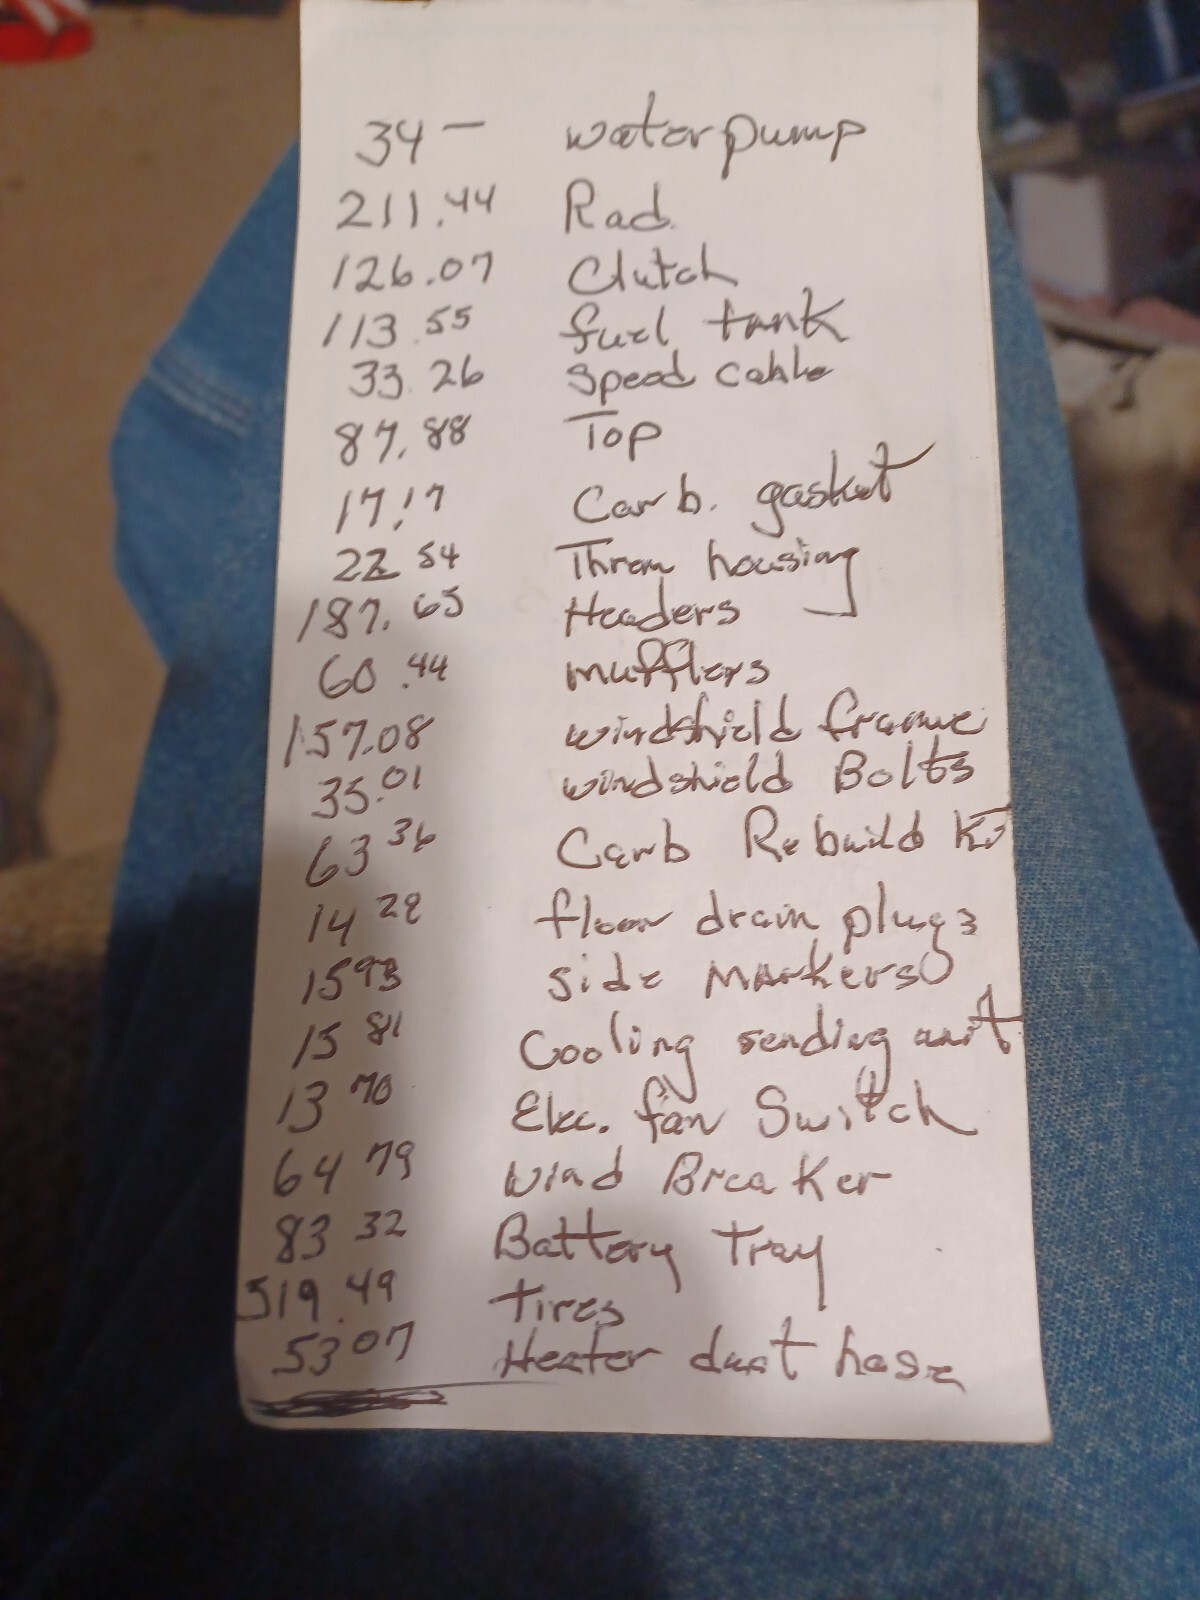 34 — water pump
211.44 Rad.
126.07 Clutch
113.55 fuel tank
33.26 Speed cable
87.88 Top
17.17 Carb. gasket
22.54 Therm housing
187.65 Headers
60.44 mufflers
157.08 windshield frame
35.01 windshield Bolts
63 36 Carb Rebuild Kit
14 28 floor drain plugs
15 93 side Markers
15 81 Cooling sending unit
13 70 Elec. fan Switch
64 79 Wind Breaker
83 32 Battery Tray
519.49 Tires
53 07 Heater duct hose